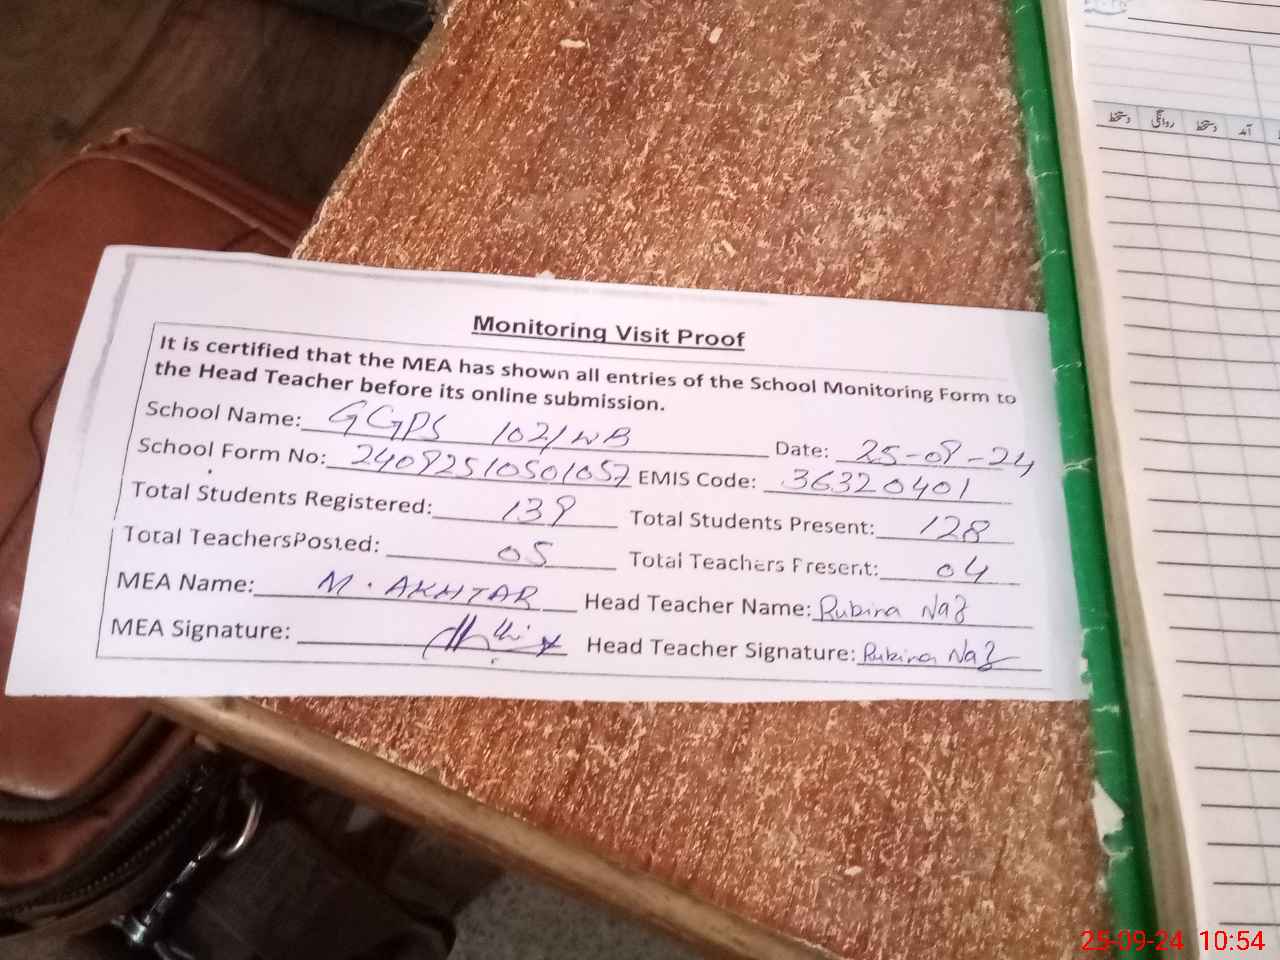 Monitoring Visit Proof
It is certified that the MEA has shown all entries of the School Monitoring Form to
the Head Teacher before its online submission.
School Name: GGPS 102/WB Date: 25-09-24
School Form No: 24092510501057 EMIS Code: 36320401
Total Students Registered: 139 Total Students Present: 128
Total TeachersPosted: 05 Total Teachers Present: 04
MEA Name: M. AKHTAR Head Teacher Name: Rubina Naz
MEA Signature: Head Teacher Signature: Rubina Naz
دستخط روانگی دستخط آمد
25-09-24 10:54